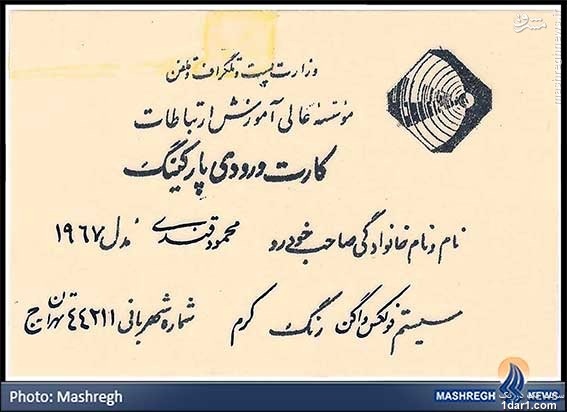 وزارت پست و تلگراف و تلفن
مؤسسه عالی آموزش ارتباطات
کارت ورودی پارکینگ
نام و نام خانوادگی صاحب خودرو محمود قندی مدل ۱۹۶۷
سیستم فولکس واگن رنگ کرم شماره شهربانی ۴۴۲۱۱ تهران ج
Photo: Mashregh
MASHREGH NEWS
1dar1.com
mashreghnews.ir